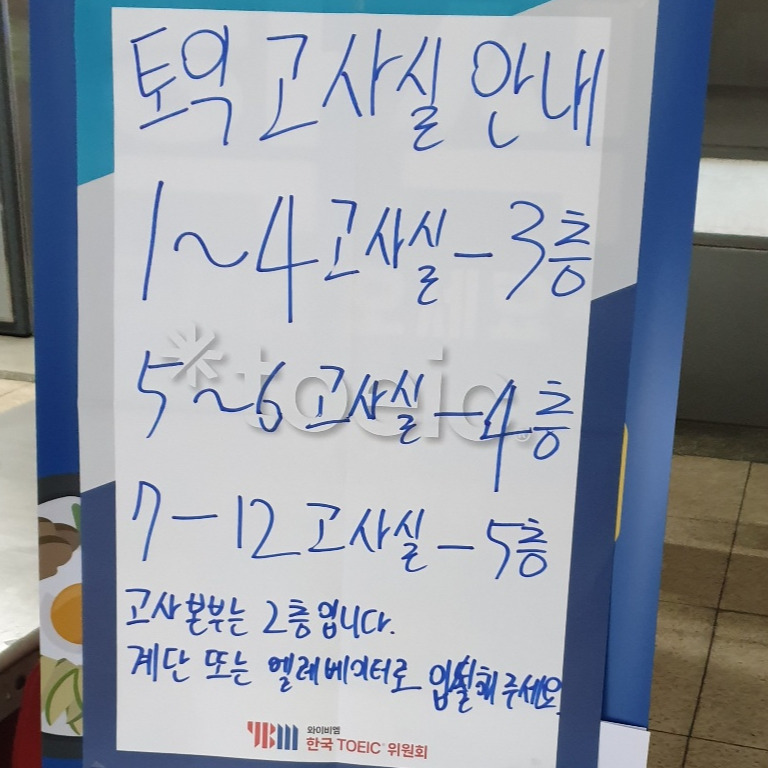 토익 고사실 안내
1~4 고사실 - 3층
5~6 고사실 - 4층
7-12 고사실 - 5층
고사본부는 2층입니다.
계단 또는 엘레베이터로 입실해주세요
*toeic
YBM 와이비엠
한국 TOEIC 위원회